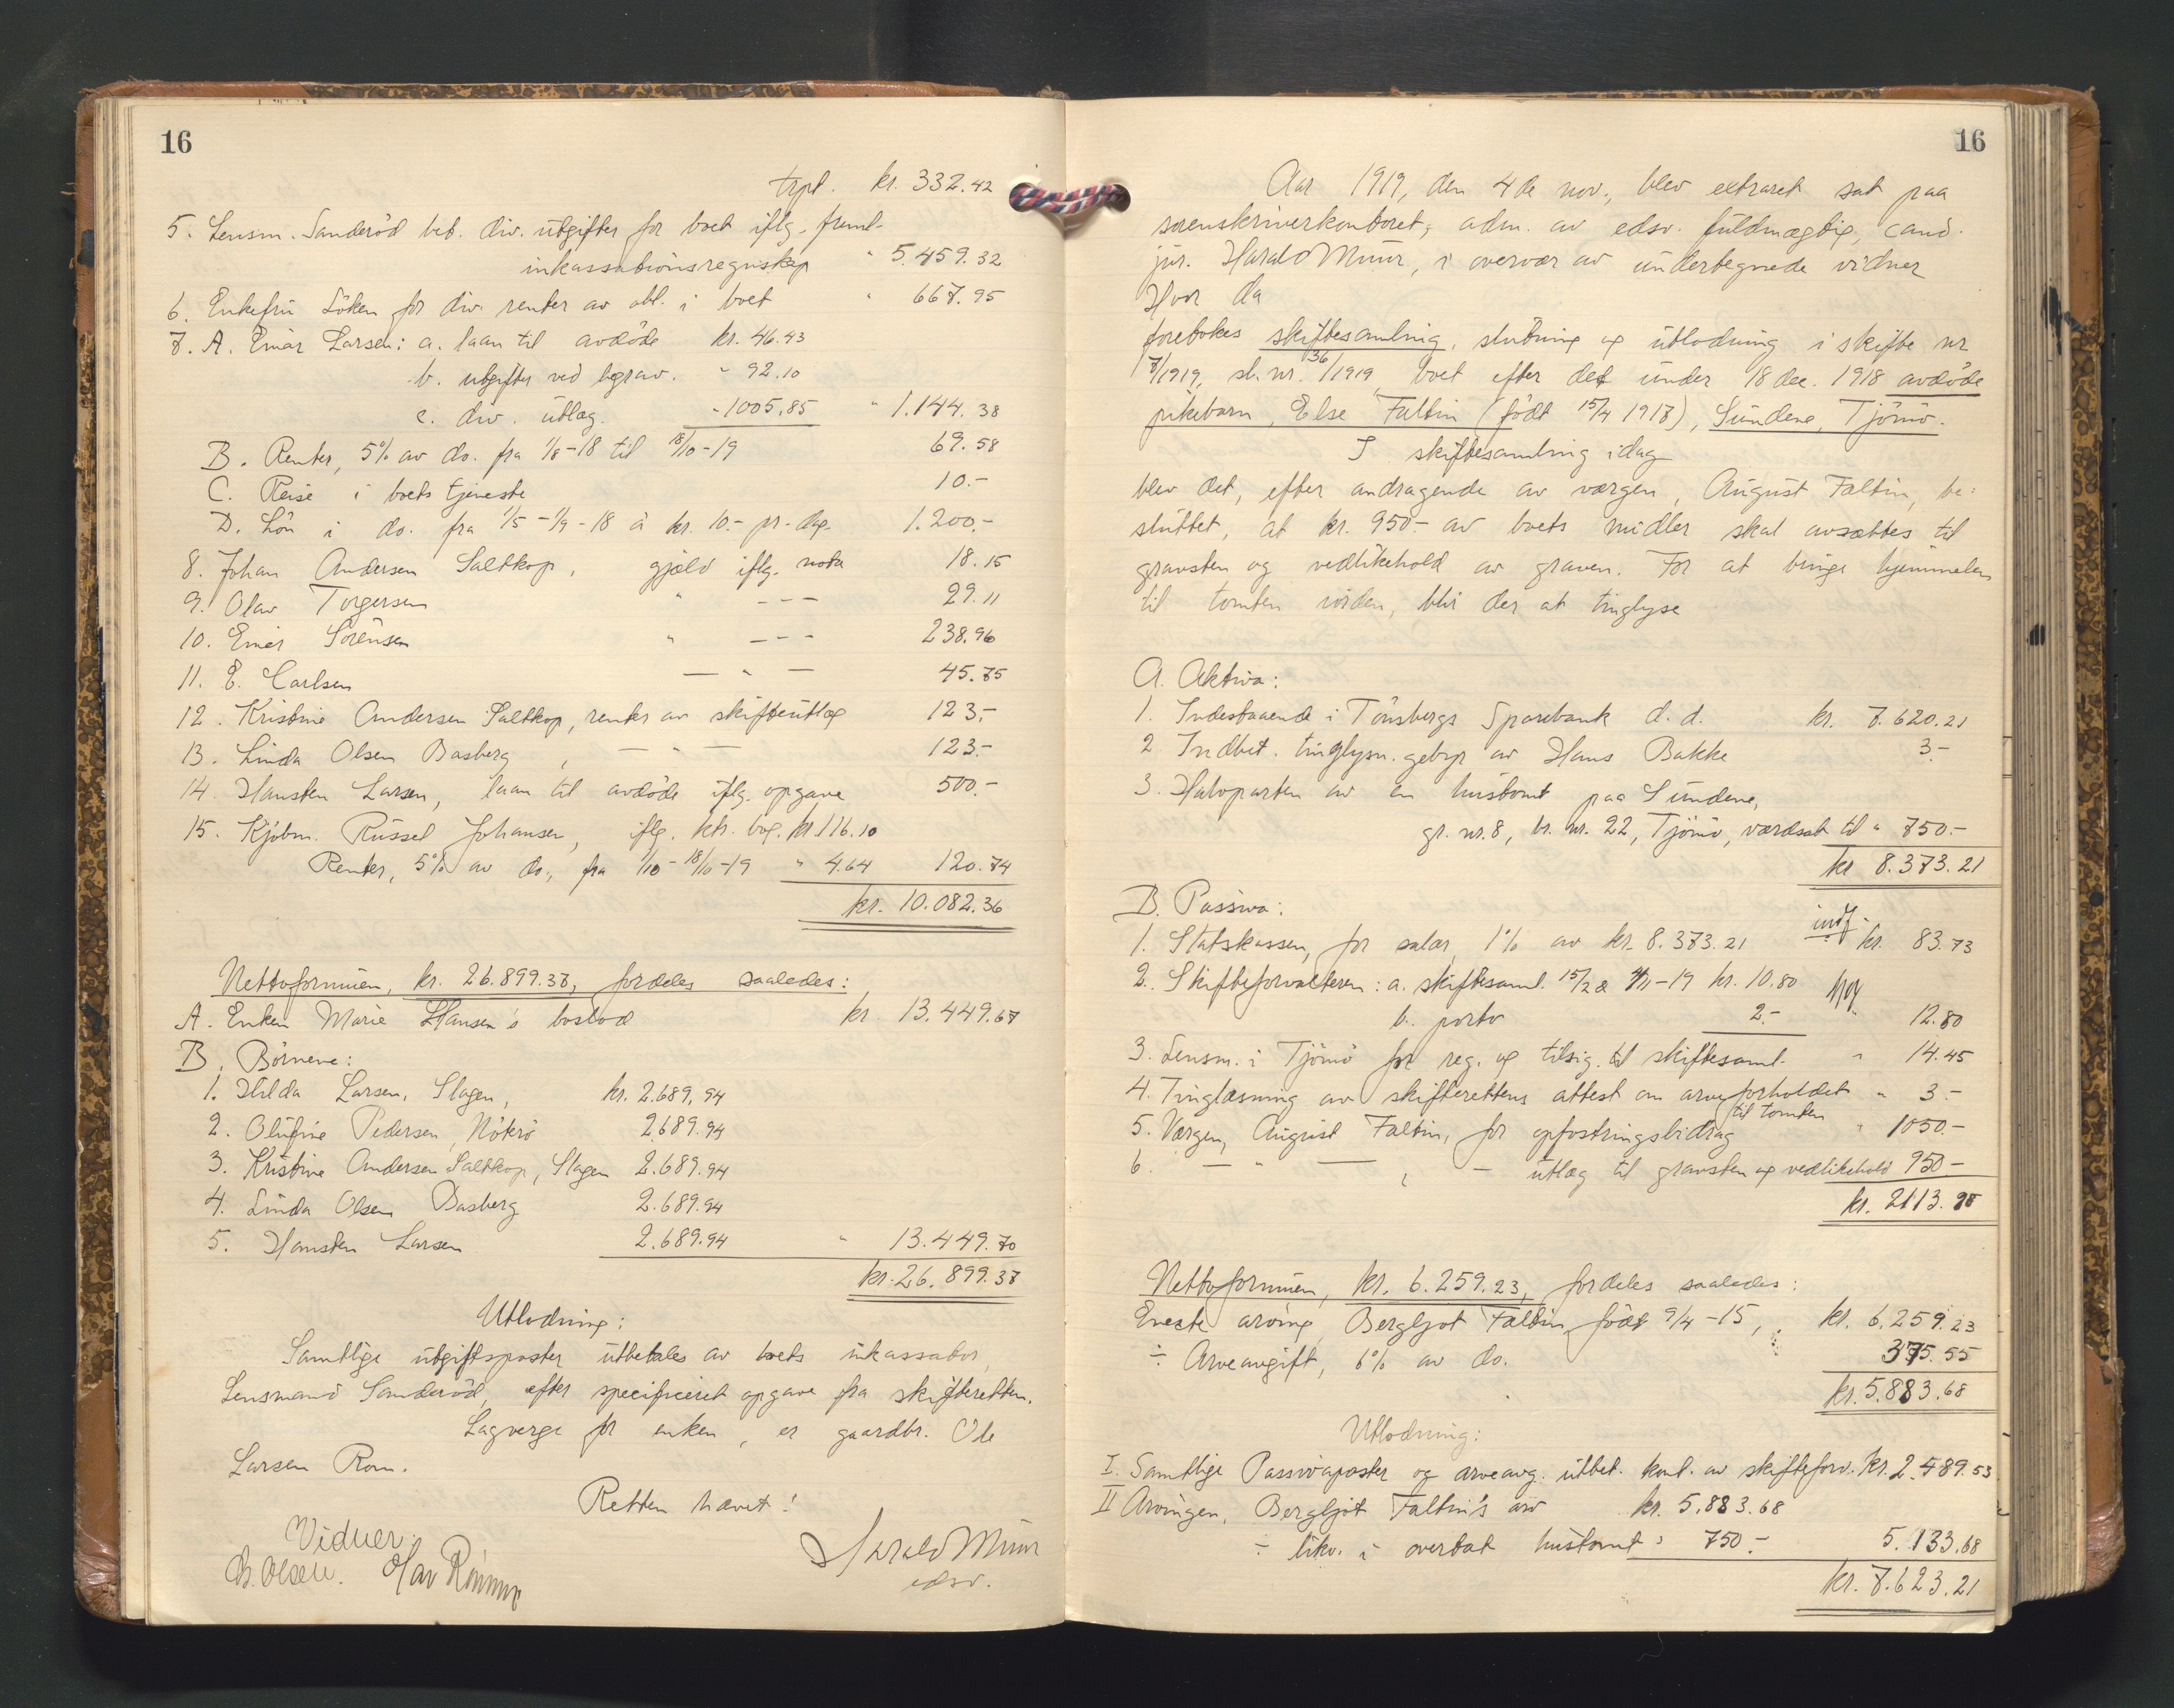 16
trpt. kr. 332.42
5. Lensm. Sanderöd bet. div. utgifter for boet iflg. freml.
inkassationsregnskap " 5.459.32
6. Enkefru Löken for div. renter av obl. i boet " 667.95
7. A. Einar Larsen: a. laan til avdöde kr. 46.43
b. utgifter ved begrav. " 92.10
c. div. utlæg. " 1005.85 " 1.144.38
B. Renter, 5% av do. fra 1/8-18 til 18/10-19 69.58
C. Reise i boets tjeneste 10.-
D. Lön i do. fra 1/5-1/9-18 à kr. 10.- pr. dag. 1.200.-
8. Johan Andersen Saltkop, gjæld iflg. nota 18.15
9. Olav Torgersen " --- 29.11
10. Einar Sörensen " --- 238.96
11. E. Carlsen — " — 45.75
12. Kristine Andersen Saltkop, renter av skifteutlæg 123.-
13. Linda Olsen Basberg, — " — 123.-
14. Hansten Larsen, laan til avdöde iflg. opgave 500.-
15. Kjöbm. Russel Johansen, iflg. ktr. bog. kr. 116.10
Renter, 5% av do., fra 1/10-18/10-19 " 4.64 120.74
kr. 10.082.36
Nettoformuen, kr. 26.899.37, fordeles saaledes:
A. Enken Marie Hansen's boslod kr. 13.449.67
B. Börnene:
1. Hilda Larsen, Slagen, kr. 2.689.94
2. Olufine Pedersen, Nötrö 2.689.94
3. Kristine Andersen Saltkop, Slagen 2.689.94
4. Linda Olsen Basberg 2.689.94
5. Hansten Larsen 2.689.94 " 13.449.70
kr. 26.899.37
Utlodning:
Samtlige utgiftsposter utbetales av boets inkassator,
Lensmand Sanderöd, efter specificeret opgave fra skifteretten.
Lagverge for enken, er gaardbr. Ole
Larsen Rom.
Retten hævet!
Vidner:
Harald Muur
edsv.
16
Aar 1919, den 4de nov., blev extraret sat paa
sorenskriverkontoret, adm. av edsv. fuldmægtig, cand.
jur. Harald Muur, i overvær av undertegnede vidner
Hvor da
foretokes skiftesamling, slutning og utlodning i skifte nr
7/1919, sl. nr. 36/1919, boet efter det under 18 dec. 1918 avdöde
pikebarn, Else Faltin (födt 15/4 1918), Sundene, Tjömö.
I skiftesamling idag
blev det, efter andragende av værgen, August Faltin, be-
sluttet, at kr. 950.- av boets midler skal avsættes til
gravsten og vedlikehold av graven. For at bringe hjemmelen
til tomten i orden, blir der at tinglyse
A. Aktiva:
1. Indestaaende i Tönsbergs Sparebank d. d. kr. 7.620.21
2. Indbet. tinglysn. gebyr av Hans Bakke 3.-
3. Halvparten av en hustomt paa Sundene,
gr. nr. 8, br. nr. 22, Tjömö, værdsat til " 750.-
kr 8.373.21
B. Passiva:
1. Statskassen, for salær, 1% av kr. 8.373.21 indf. kr. 83.73
2. Skifteforvalteren: a. skiftesaml. 15/2 & 4/11-19 kr. 10.80
b. porto 2.- " 12.80
3. Lensm. i Tjömö for reg. og tilsig. til skiftesaml. " 14.45
4. Tinglæsning av skifterettens attest om arveforholdet " 3.-
til tomten
5. Værgen, August Faltin, for opfostringsbidrag " 1050.-
6. — " — , — utlæg til gravsten og vedlikehold 950.-
kr. 2113.98
Nettoformuen, kr. 6.259.23, fordeles saaledes:
Eneste arving, Bergljot Faltin, födt 9/4-15, kr. 6.259.23
÷ Arveavgift, 6% av do. 375.55
kr. 5.883.68
Utlodning:
I. Samtlige Passivaposter og arveavg. utbet. kont. av skifteforv. kr. 2.489.53
II Arvingen, Bergljot Faltin's arv kr. 5.883.68
÷ likv. i overtat hustomt " 750.- 5.133.68
kr. 7.623.21